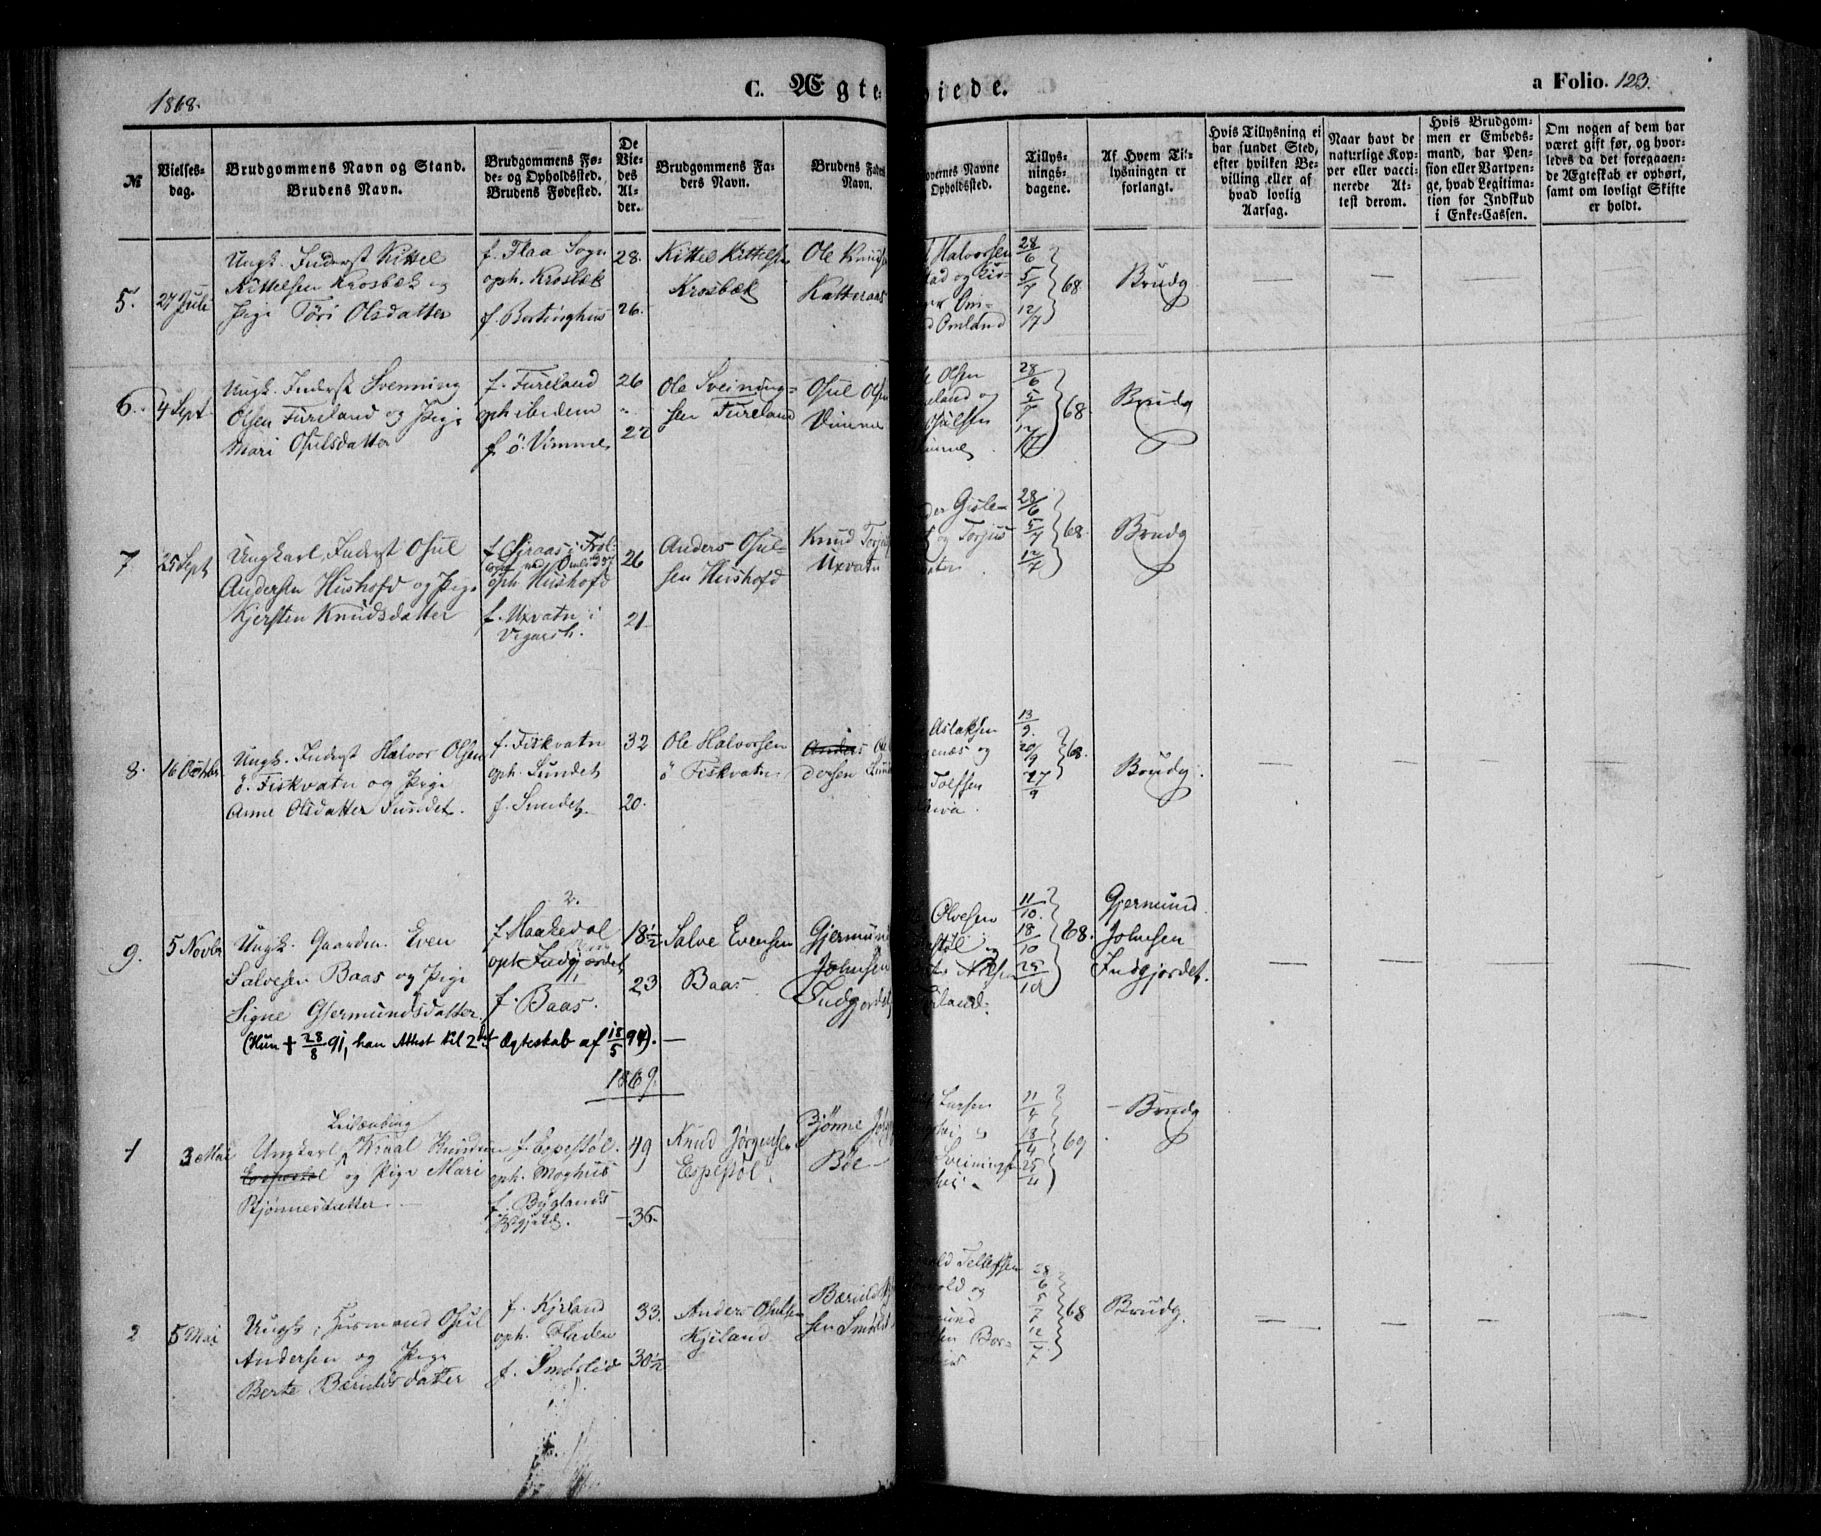 1868.
C. Ægte
viede.
a Folio. 123.
№
Vielses-
dag.
Brudgommens Navn og Stand.
Brudens Navn.
Brudgommens Fø-
de- og Opholdssted.
Brudens Fødested.
De
Vie-
des
Al-
der.
Brudgommens Fa-
ders Navn.
Brudens Faders
Navn.
overnes Navne
Opholdssted.
Tillys-
nings-
dagene.
Af Hvem Til-
lysningen er
forlangt.
Hvis Tillysning ei
har fundet Sted,
efter hvilken Be-
villing eller af
hvad lovlig
Aarsag.
Naar havt de
naturlige Kop-
per eller vacci-
nerede At-
test derom.
Hvis Brudgom-
men er Embeds-
mand, har Pen-
sion eller Vartpen-
ge, hvad Legitima-
tion for Indskud
i Enke-Cassen.
Om nogen af dem har
været gift før, og hvor-
ledes da det foregaaen-
de Ægteskab er ophørt,
samt om lovligt Skifte
er holdt.
5. 27 Juli
Ungk. Inderst Kittel
Kittelsen Krosbæk og
Pige Töri Olsdatter
f. Flaa Sogn
oph. Krosbæk
f. Bertinghus
28.
26.
Kittel Kittelsen
Krosbæk
Ole Knuds
Katteraas
Halvorsen
tad og
Omland
28/6
5/7
12/7
68
Brudg
6. 4 Sept
Ungk. Inderst Svenning
Olsen Fureland og Pige
Mari Osulsdatter
f. Fureland
oph ibidem
f. ö. Vimme
26
"
22
Ole Sveining-
sen Fureland
Osul Olsen
Vimme
Olsen
eland og
sulsen
imme
28/6
5/7
12/7
68.
Brudg
7. 25 Sept
Ungkarl Inderst Osul
Andersen Hushofd og Pige
Kjersten Knudsdatter
oph Hushofd
f. Uxvatn i
Vegarsh.
26
21
Anders Osul-
sen Hushofd
Knud Torjus
Uxvatn
der Gisle-
og Torjus
vatn
28/6
5/7
12/7
68.
Brudg
8. 16 Octbr
Ungk. Inderst Halvor Olsen
ö. Fiskvatn og Pige
Anne Olsdatter Sundet.
f. Fiskvatn
oph. Sundet
f. Sundet.
32
20.
Ole Halvorsen
ö Fiskvatn
Anders Ole
dersen Sund
Aslaksen
enæs og
Tolfsen
13/9.
20/9
27/9
68.
Brudg.
9. 5 Novbr
Ungk. Gaardm. Even
Salvesen Baas og Pige
Signe Gjermundsdatter.
(Hun + 28/8 91, han Attest til 2det Ægteskab af 18/5 94). —
f. Haakedal
oph. Indgjordet
f. Baas.
18½
23
Salve Evensen
Baas
Gjermund
Johnsen
Indgjordet
Olvesen
støl og
Nilsen
land.
11/10.
18/10
25/10
68.
Gjermund
Johnsen
Indgjordet.
1869.
1 3 Mai
Ungkarl Kraal Knudsen
Espestøl og Pige Mari
Bjønnesdatter.
f. Espestøl.
oph. Moghus
f. Byglands
49
36.
Knud Jørgensen
Espestøl.
Bjönne
Böe
Larsen
Sveinings
11/4
18/4
25/4
69
Brudg
2 5 Mai
Ungk. Husmand Osul
Andersen og Pige
Berte Bærulsdatter
f. Kjeland
oph. Fladen
f. Smörlid
33.
30½
Anders Osulsen
Kjeland.
Bæruld
sen Smörlid
Tellefsen
vold og
mund
Bor-
28/6
5/7
12/7
68
Brudg.